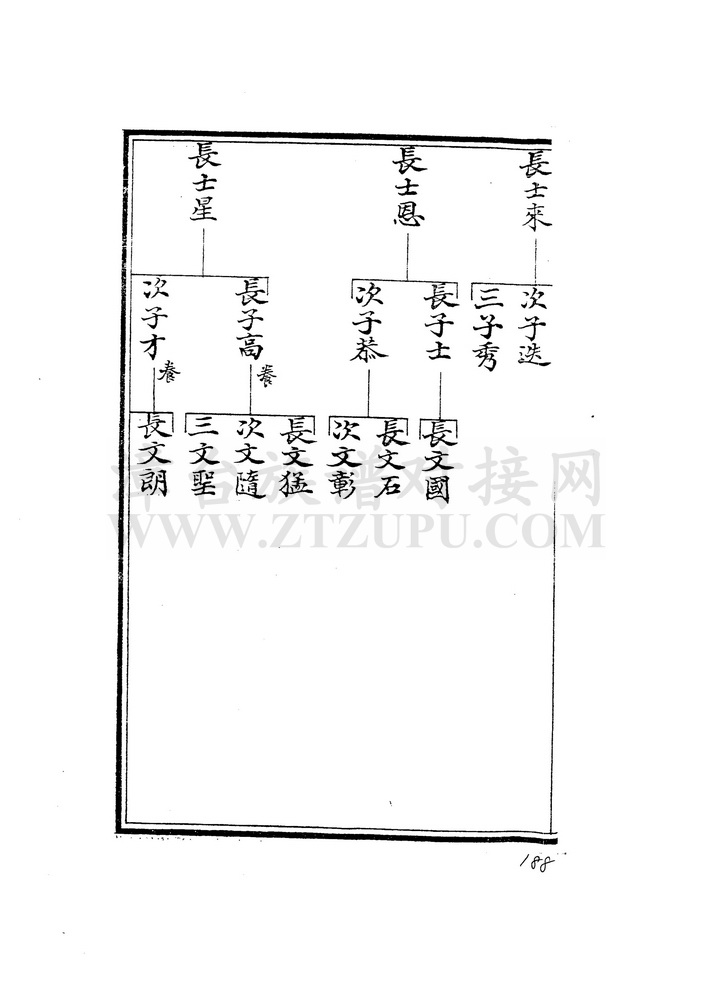 長士來
長士恩
長士星
次子迭
三子秀
長子士
次子恭
長子高
養
次子才
養
長文國
長文石
次文彰
長文猛
次文隨
三文聖
長文朗
章台族谱对接网
WWW.ZTZUPU.COM
188